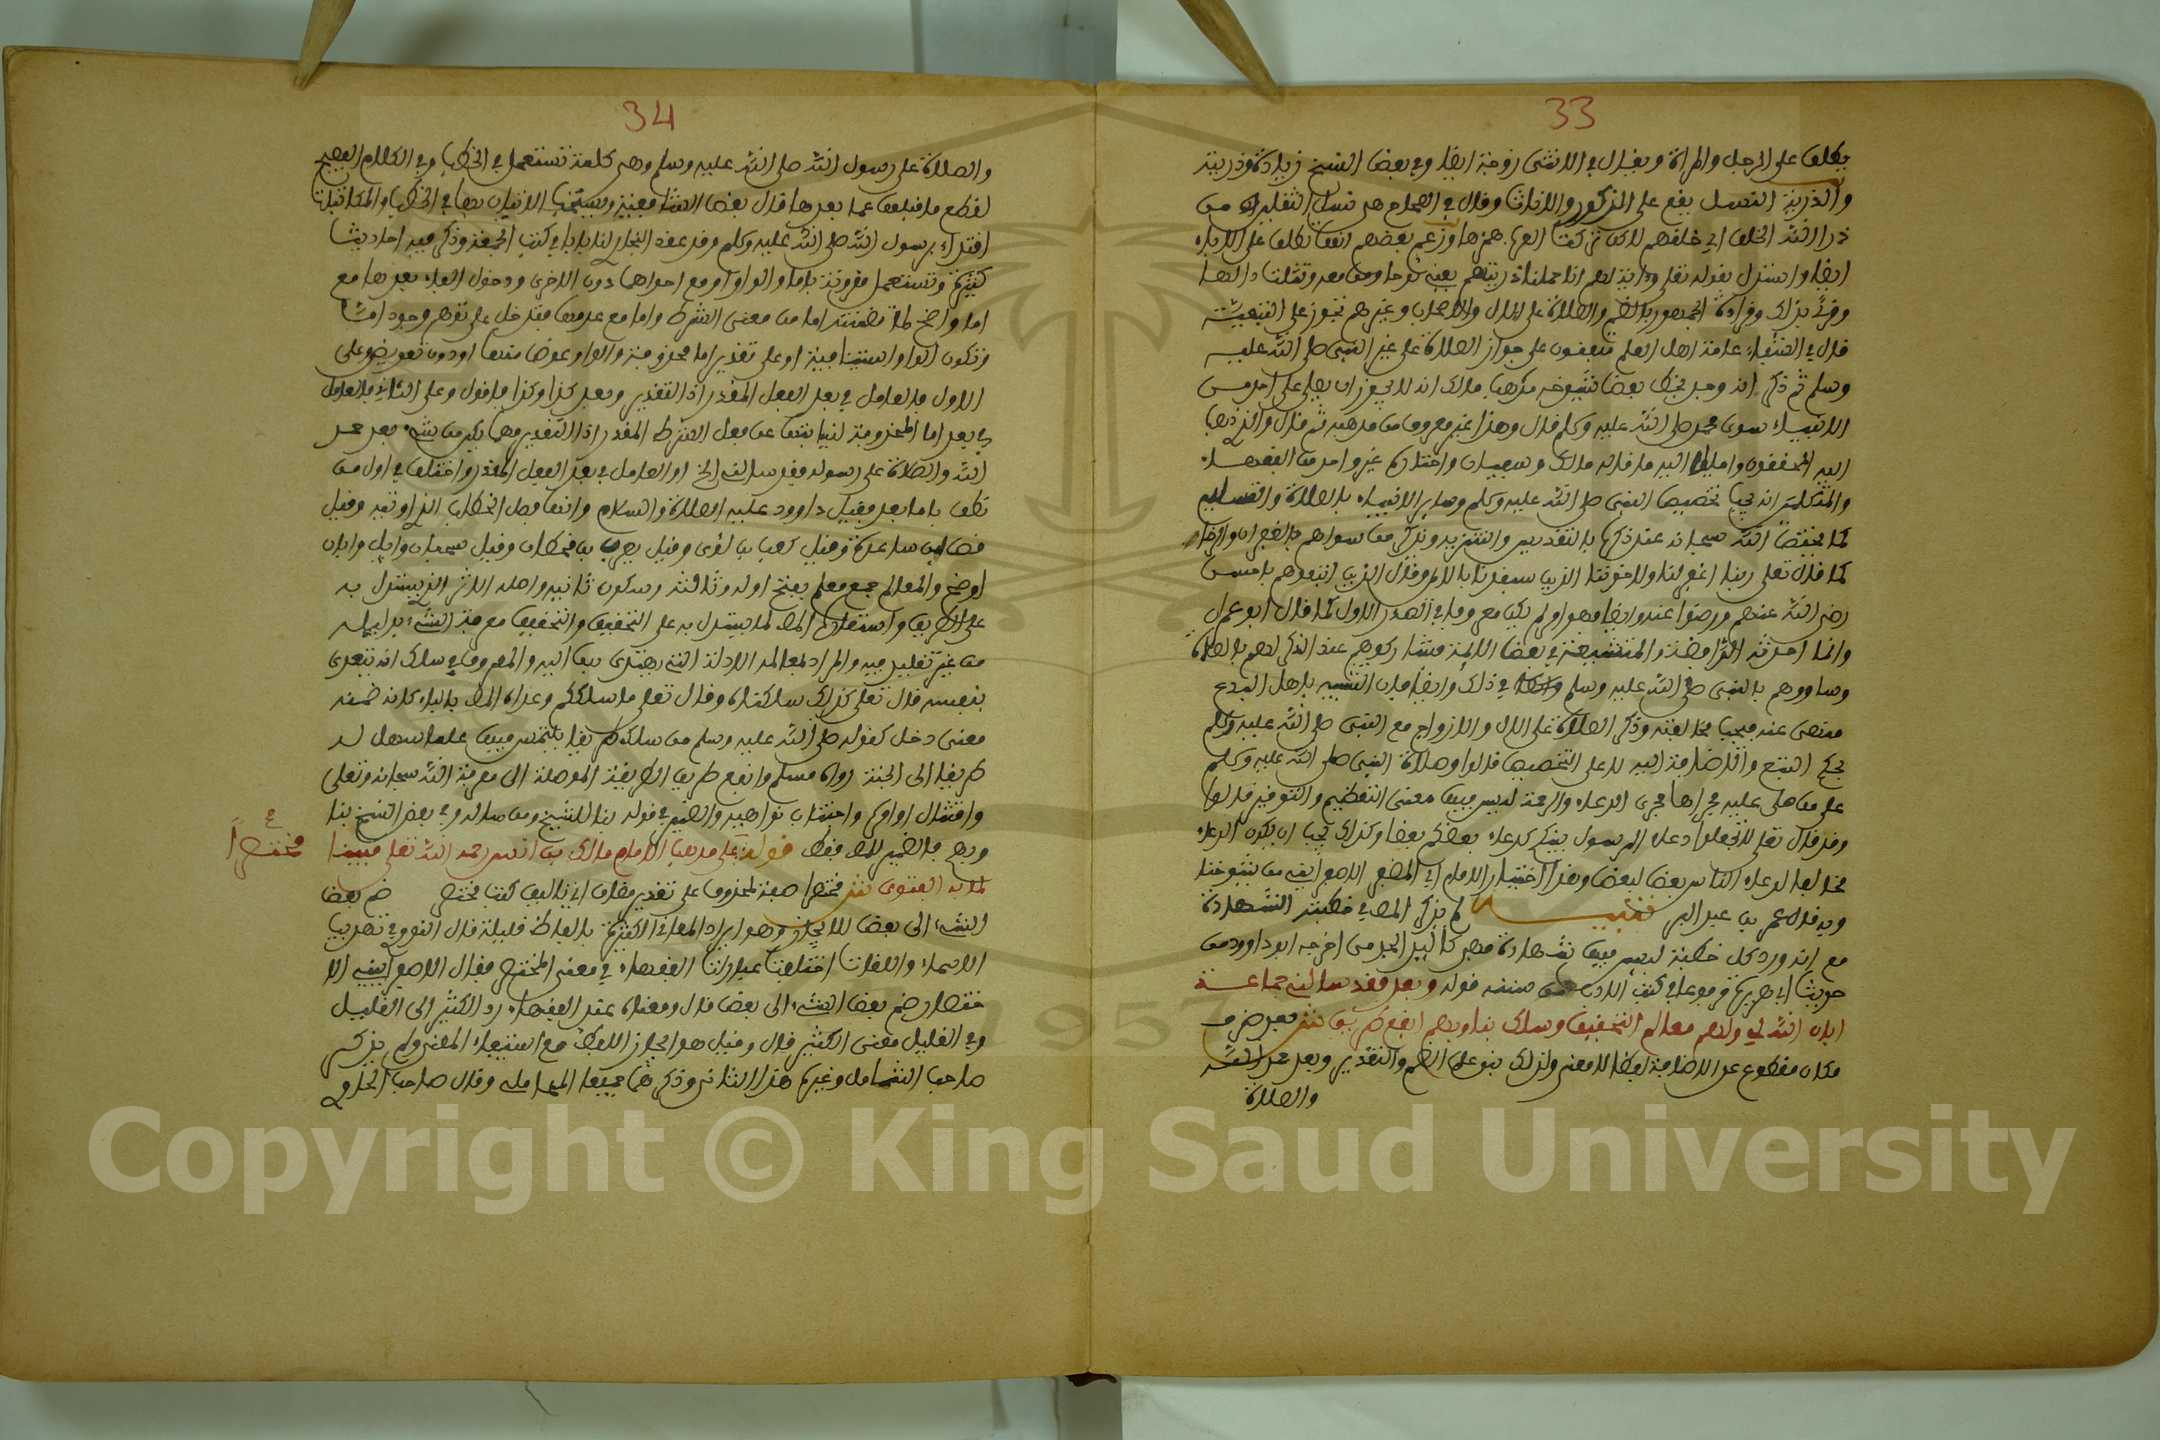 33
يطلق على الرجل والمراة ويقال في الانثى زوجة ايضا وفي بعض النسخ زيادة وذريته
والذرية النسل يقع على الذكور والاناث وقال في الصحاح هي نسل الثقلين من
ذرا الله الخلق اي خلقهم الا ان تركت العرب همزها وزعم بعضهم انها تطلق على الاباء
ايضا واستدل بقوله تعلى واية لهم انا حملنا ذريتهم يعني نوحا ومن معه وتثلث ذالها
وقرئ بذلك وقراءة الجمهور بالضم والصلاة على الال والاصحاب وغيرهم تجوز على التبعية
قال في الشفاء عامة اهل العلم متفقون على جواز الصلاة على غير النبي صلى الله عليه
وسلم ثم ذكر انه وجد بخط بعض شيوخه مذهب مالك انه لا يجوز ان يصلى على احد من
الانبياء سوى محمد صلى الله عليه وسلم قال وهذا غير معروف من مذهبه ثم قال والذي ذهب
اليه المحققون واميل اليه ما قاله مالك وسفيان واختاره غير واحد من الفقهاء
والمتكلمين انه يجب تخصيص النبي صلى الله عليه وسلم وساير الانبياء بالصلاة والتسليم
كما يختص الله سبحانه عند ذكره بالتقديس والتنزيه ويذكر من سواهم بالغفران والرضا
كما قال تعلى ربنا اغفر لنا ولاخوتنا الذين سبقونا بالايمان وقال الذين اتبعوهم باحسن
رضي الله عنهم ورضوا عنه وايضا فهو امر لم يكن معروفا في الصدر الاول كما قال ابو عمران
وانما احدثه الرافضة والمتشيعة في بعض الايمة فشاركوهم عند الذكر لهم بالصلاة
وساووهم بالنبي صلى الله عليه وسلم في ذلك وايضا فان التشبه باهل البدع
منهى عنه فيجب مخالفته وذكر الصلاة على الال والازواج مع النبي صلى الله عليه وسلم
بحكم التبع والاضافة اليه لا على التخصيص قالوا وصلاة النبي صلى الله عليه وسلم
على من صلى عليه مجراها مجرى الدعاء والرحمة ليس فيها معنى التعظيم والتوقير قالوا
وقد قال تعلى لا تجعلوا دعاء الرسول بينكم كدعاء بعضكم بعضا وكذلك يجب ان يكون الدعاء
مخالفا لدعاء الناس بعضا لبعض وهذا اختيار الامام ابي المظفر الاسفراييني من شيوخنا
وبه قال عمر بن عبد البر تنبيه لم يذكر المص في خطبته الشهادة
مع انه ورد كل خطبة ليس فيها شهادة فهي كاليد الجذمى اخرجه ابو داوود من
حديث ابي هريرة مرفوعا في كتب الادب من سننه قوله وبعد فقد سالني جماعة
ابان الله لي ولهم معالم التحقيق وسلك بنا وبهم انفع طريق ش بعد ظرف
مكان مقطوع عن الاضافة لفظا لا معنى ولذلك بني على الضم والتقدير وبعد حمد الله
والصلاة
34
والصلاة على رسول الله صلى الله عليه وسلم وهي كلمة تستعمل في الخطب وفي الكلام الفصيح
لقطع ما قبلها عما بعدها قال بعض الشافعية ويستحب الاتيان بها في الخطب والمكاتبات
اقتداء برسول الله صلى الله عليه وسلم وقد عقد البخاري لها بابا في كتب الجمعة وذكر فيه احاديث
كثيرة وتستعمل مقرونة باما والواو او مع احداهما دون الاخرى ودخول الفاء بعدها مع
اما واضح لما تضمنته اما من معنى الشرط واما مع عدمها فيدخل على توهم وجود اما
وتكون الواو استينافية او على تقدير اما محذوفة والواو عوض منها او دون تعويض وعلى
الاول فالعامل في بعد الفعل المقدر اذ التقدير وبعد كذا وكذا فاقول وعلى الثاني فالعامل
في بعد اما المحذوفة لنيابتها عن فعل الشرط المقدر اذ التقدير مهما يكن من شيء بعد حمد
الله والصلاة على رسوله فقد سالني الخ او العامل في بعد الفعل المقدر واختلف في اول من
نطق باما بعد فقيل داوود عليه الصلاة والسلام وانها فصل الخطاب الذي اوتيه وقيل
قس ابن ساعدة وقيل كعب بن لؤي وقيل يعرب بن قحطان وقيل سحبان وايل وابان
اوضح والمعالم جمع معلم بفتح اوله وثالثه وسكون ثانيه واصله الاثر الذي يستدل به
على الطريق واستعاره المص لما يستدل به على التحقيق والتحقيق معرفة الشيء بدليله
من غير تقليد فيه والمراد بمعالمه الادلة التي يهتدى بها اليه والمعروف في سلك انه يتعدى
بنفسه قال تعلى كذلك سلكناه وقال تعلى ما سلككم وعداه المص بالباء كانه ضمنه
معنى دخل كقوله صلى الله عليه وسلم من سلك طريقا يلتمس فيها علما سهل له
طريقا الى الجنة رواه مسلم وانفع طريق الطريقة الموصلة الى معرفة الله سبحانه وتعلى
وامتثال اوامره واجتناب نواهيه والضمير في قوله بنا للشيخ ومن ساله وفي بعض النسخ بنا
وبهم فالضمير للمص فقط قوله على مذهب الامام مالك بن انس رحمه الله تعلى مبينا
مختصراً
لما به الفتوى ش مختصرا صفة لمحذوف على تقدير مضاف اي تاليف كتب مختصر ضم بعض
الشيء الى بعض للايجاز وهو ايراد المعاني الكثيرة بالفاظ قليلة قال النووي في تهذيب
الاسماء واللغات اختلفت عبارات الفقهاء في معنى المختصر فقال الاسفراييني الا
ختصار ضم بعض الشيء الى بعض قال ومعناه عند الفقهاء رد الكثير الى القليل
وفي القليل معنى الكثير قال وقيل هو ايجاز اللفظ مع استيفاء المعنى ولم يذكر
صاحب الشامل وغيره هذا الثاني وذكرهما جميعا المحاملي وقال صاحب الحاوي